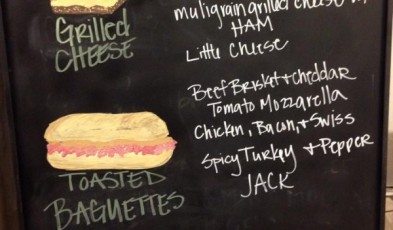 Grilled
CHEESE
muligrain grilled cheese w/
HAM
Little Cheese
Beef Brisket + cheddar
Tomato Mozzarella
Chicken, Bacon, + Swiss
Spicy Turkey + Pepper
JACK
TOASTED
BAGUETTES